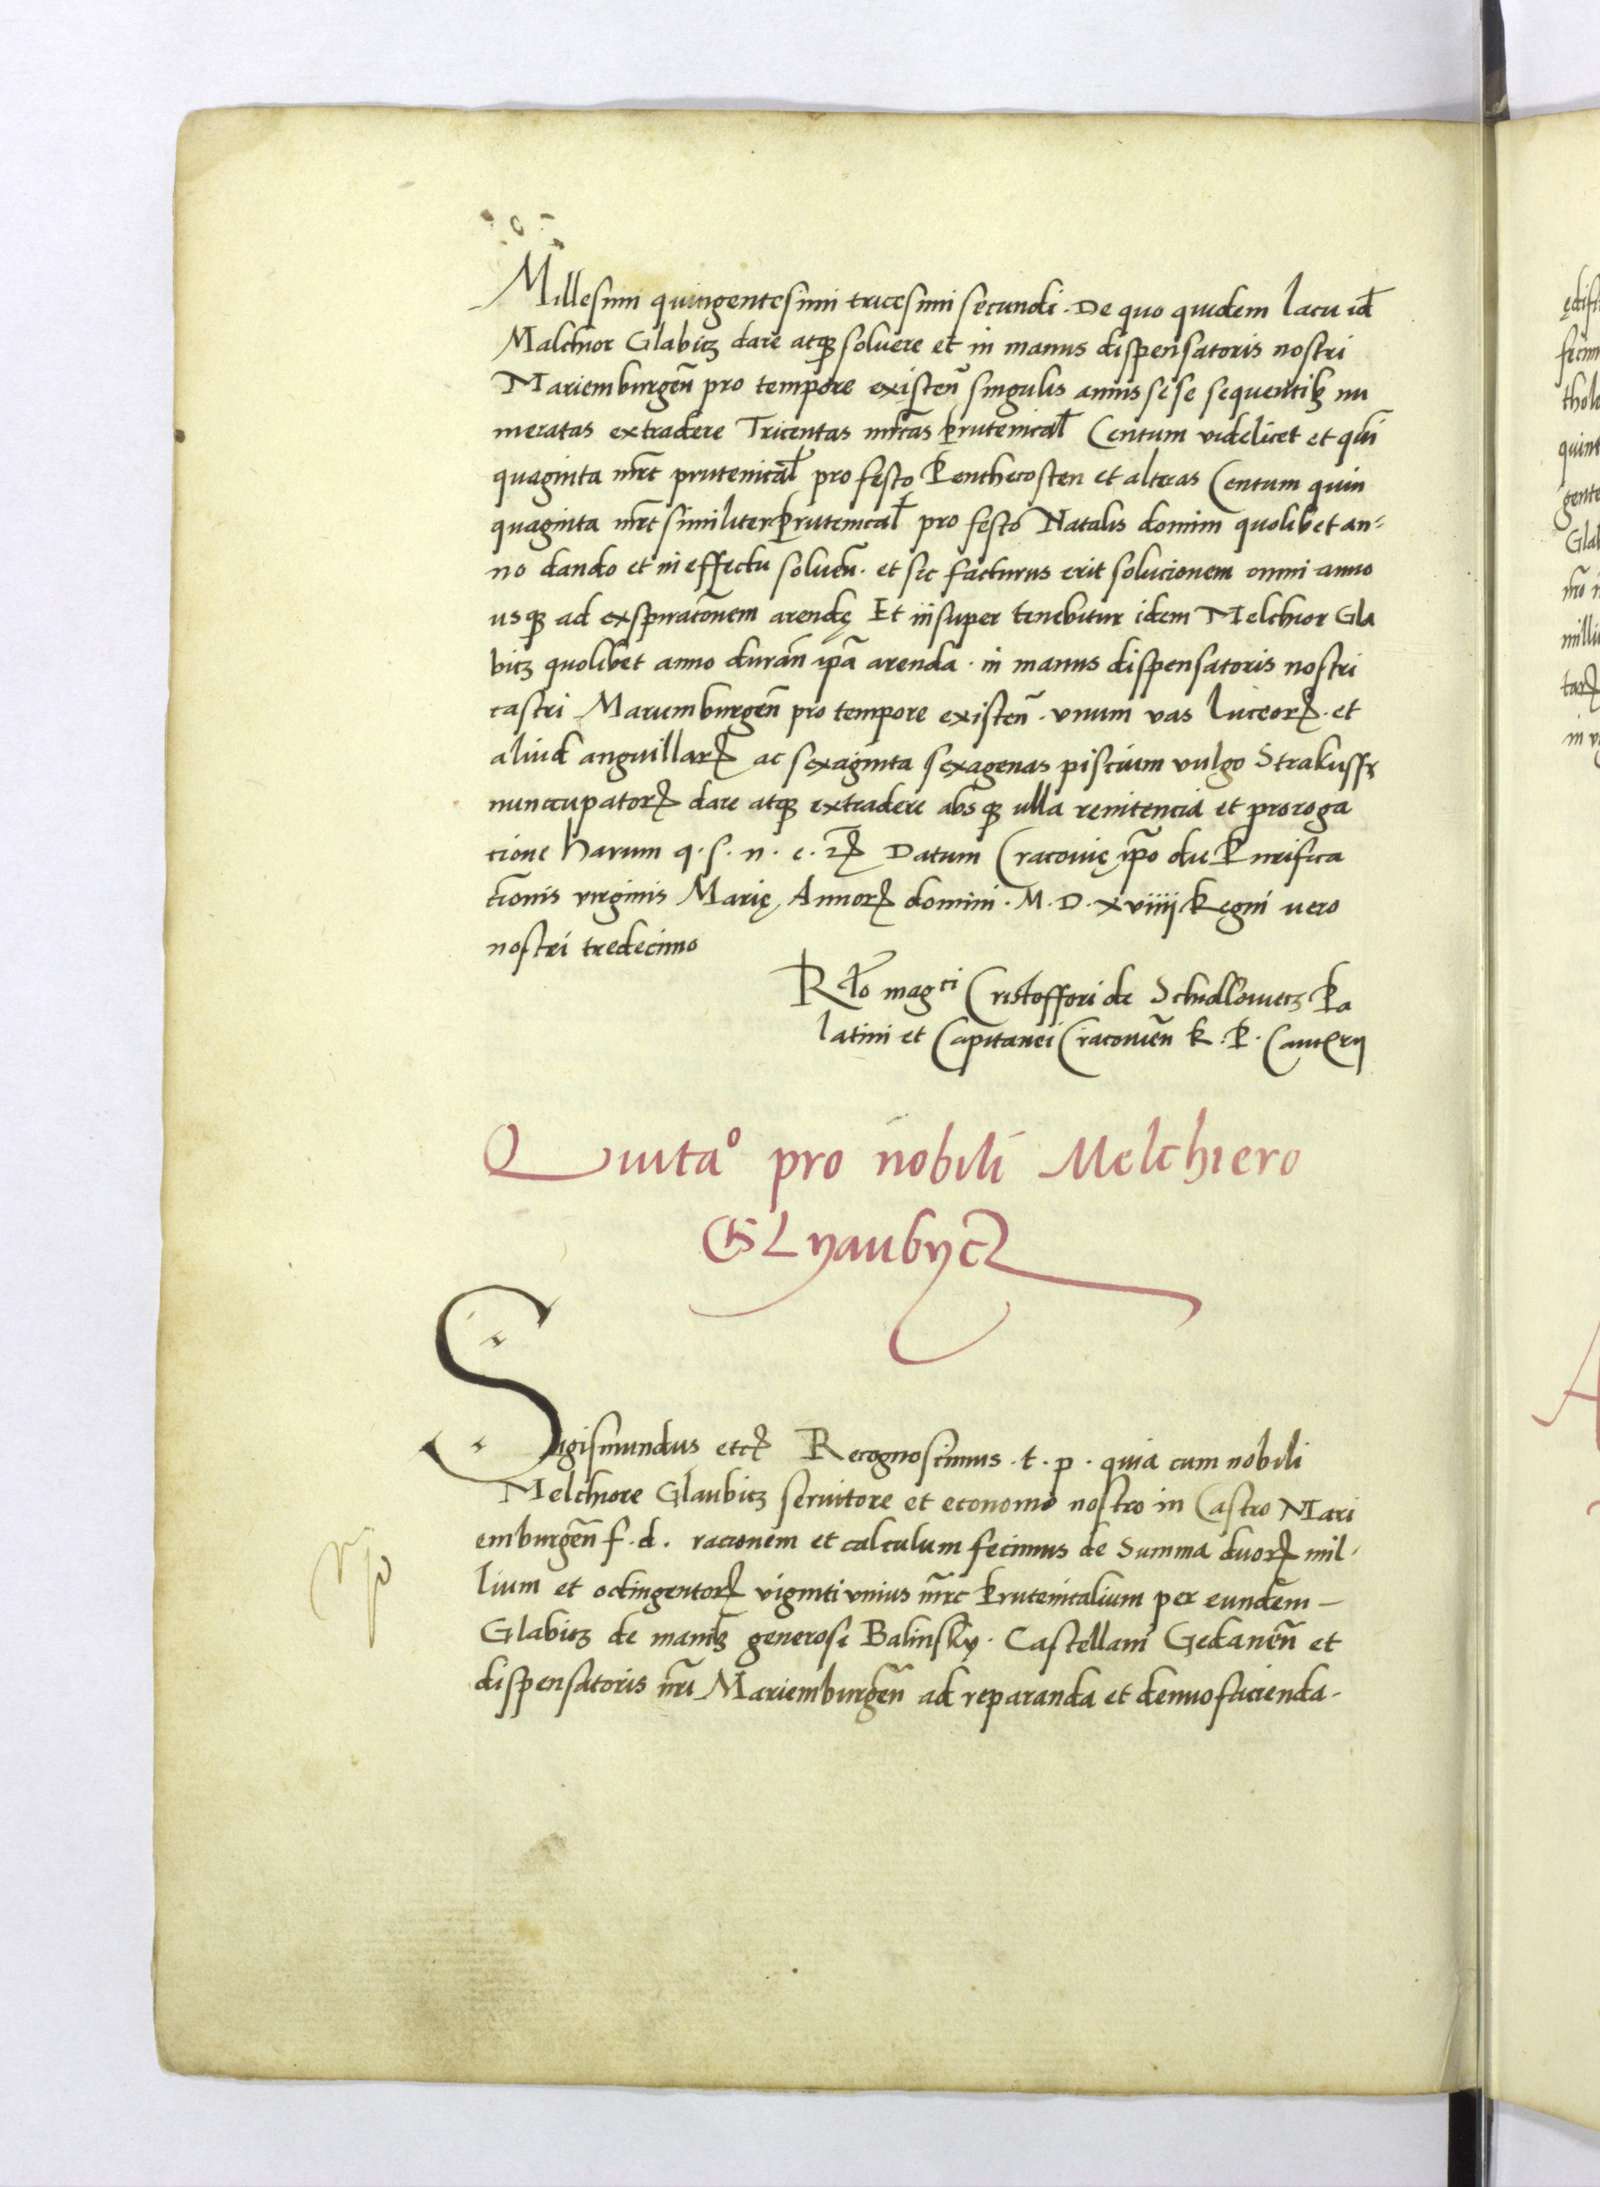 Millesimi quingentesimi tricesimi secundi. De quo quidem lacu id̃
Malchior Glabicz dare atq̃ soluere et in manus dispensatoris nostri
Mariemburgen̄ pro tempore existen̄ singulis annis sese sequentibꝫ nu
meratas extradere Tricentas mr̄cas prutenical̃ Centum videlicet et qui
quaginta mr̄c prutenical̃ pro festo Penthecosten et alteras Centum quin
quaginta mr̄c similiter prutenical̃ pro festo Natalis domini quolibet an-
no dando et in effectu soluen̄. et sic facturus erit solucionem omni anno
usq̃ ad exspirac̄onem arendę Et insuper tenebitur idem Melchior Gla
bicz quolibet anno duran̄ ip̄a arenda. in manus dispensatoris nostri
castri Mariemburgen̄ pro tempore existen̄. vnum vas luceorꝝ. et
aliud anguillarꝝ ac sexaginta sexagenas piscium vulgo Strakuff
nunccupatorꝝ dare atq̃ extradere absq̃ ulla renitencia et proroga
cione harum q. s. n. e. rꝝ Datum Cracouię ip̄o die Purifica
c̄ionis virginis Marię Annorꝝ domini. M. D. xviiii Regni vero
nostri tredecimo
Rel̃o mag^ci Cristoffori de Schidlowecz Pa
latini et Capitanei Cracouien̄ R. P. Cancerij
Quita° pro nobili Melchiero
GLyaubycz
Sigismundus etcꝝ Recognoscimus. t. p. quia cum nobili
Melchiore Glaubicz seruitore et economo nostro in Castro Mari
emburgen̄ f. d. racionem et calculum fecimus de Summa duorꝝ mil-
lium et octingentorꝝ viginti vnius mr̄c Prutenicalium per eundem —
Glabicz de manibꝫ generosi Balinsky. Castellani Gedanen̄ et
dispensatoris nr̄i Mariemburgen̄ ad reparanda et denuo facienda.